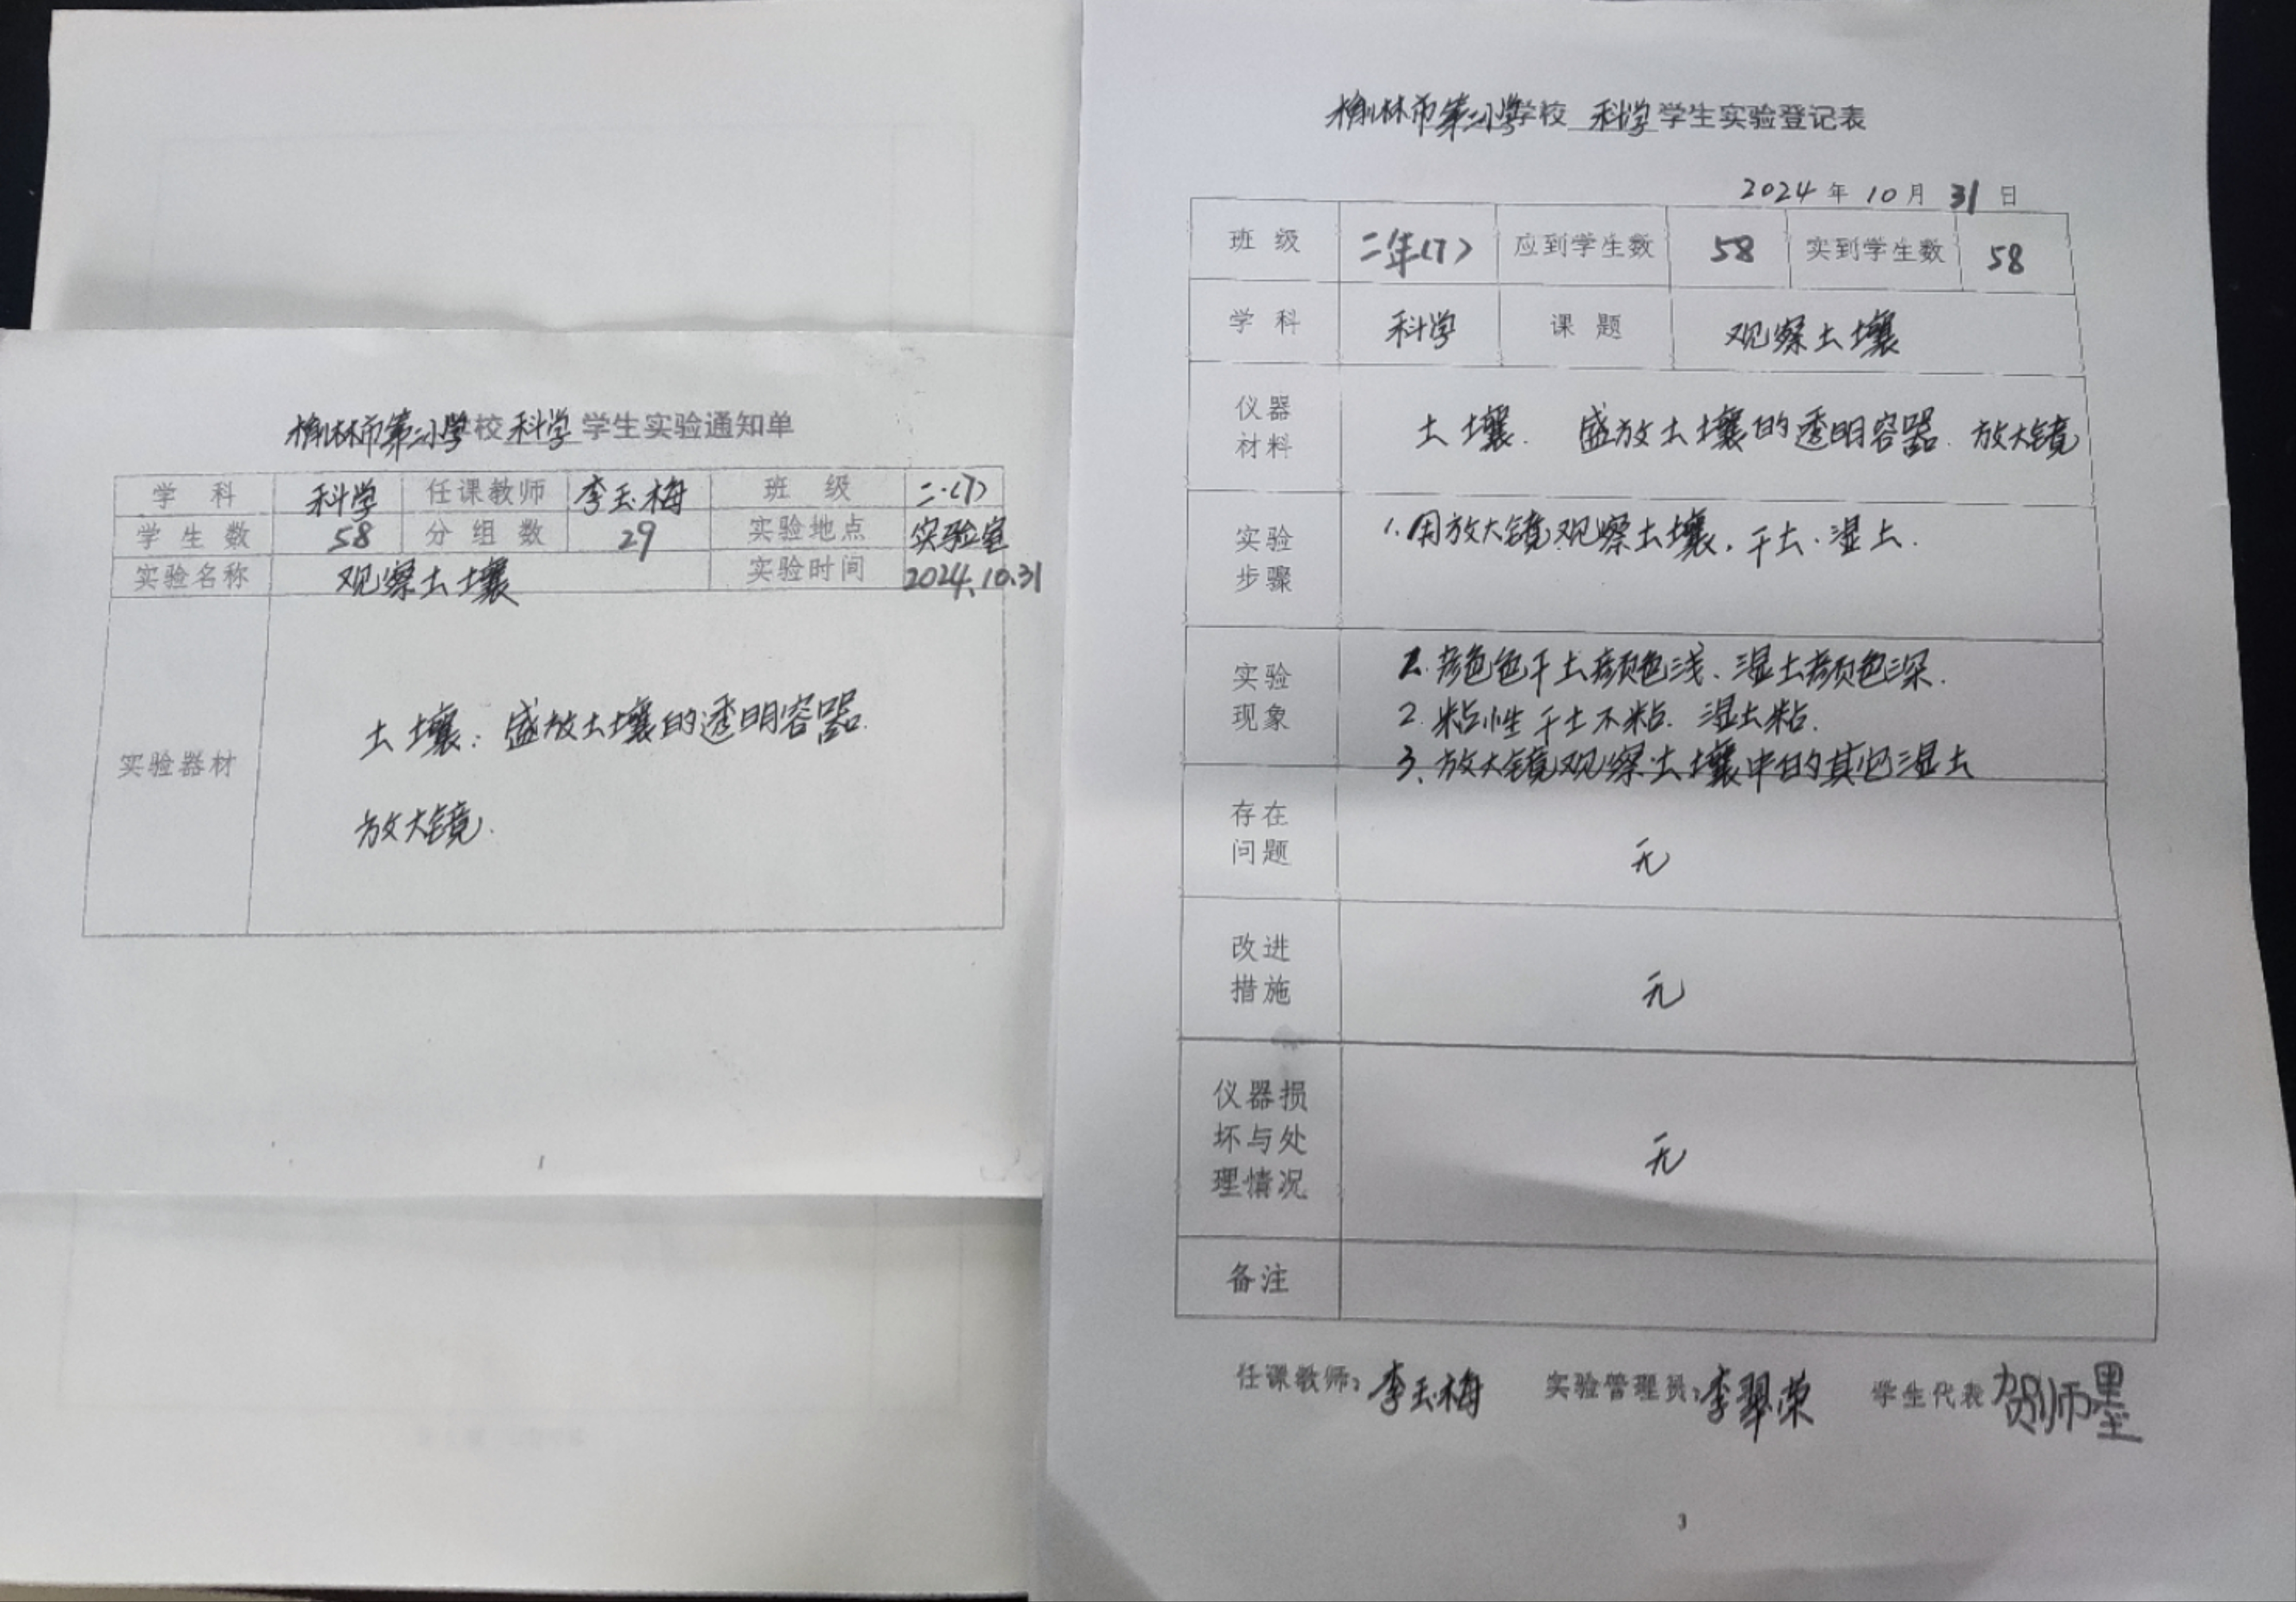 榆林市第二小学校 科学 学生实验通知单
学 科 科学 任课教师 李玉梅 班 级 二.(7)
学 生 数 58 分 组 数 29 实验地点 实验室
实验名称 观察土壤 实验时间 2024.10.31
实验器材
土壤: 盛放土壤的透明容器.
放大镜.
1
榆林市第二小学校 科学 学生实验登记表
2024 年 10 月 31 日
班 级 二年(7) 应到学生数 58 实到学生数 58
学 科 科学 课 题 观察土壤
仪器
材料
土壤. 盛放土壤的透明容器. 放大镜
实验
步骤
1.用放大镜观察土壤,干土.湿土.
实验
现象
色干土颜色浅、湿土颜色深.
2.粘性干土不粘.湿土粘.
3、放大镜观察土壤中的其它湿土
存在
问题
无
改进
措施
无
仪器损
坏与处
理情况
无
备注
任课教师:李玉梅 实验管理员:李翠荣 学生代表 贺师墨
3